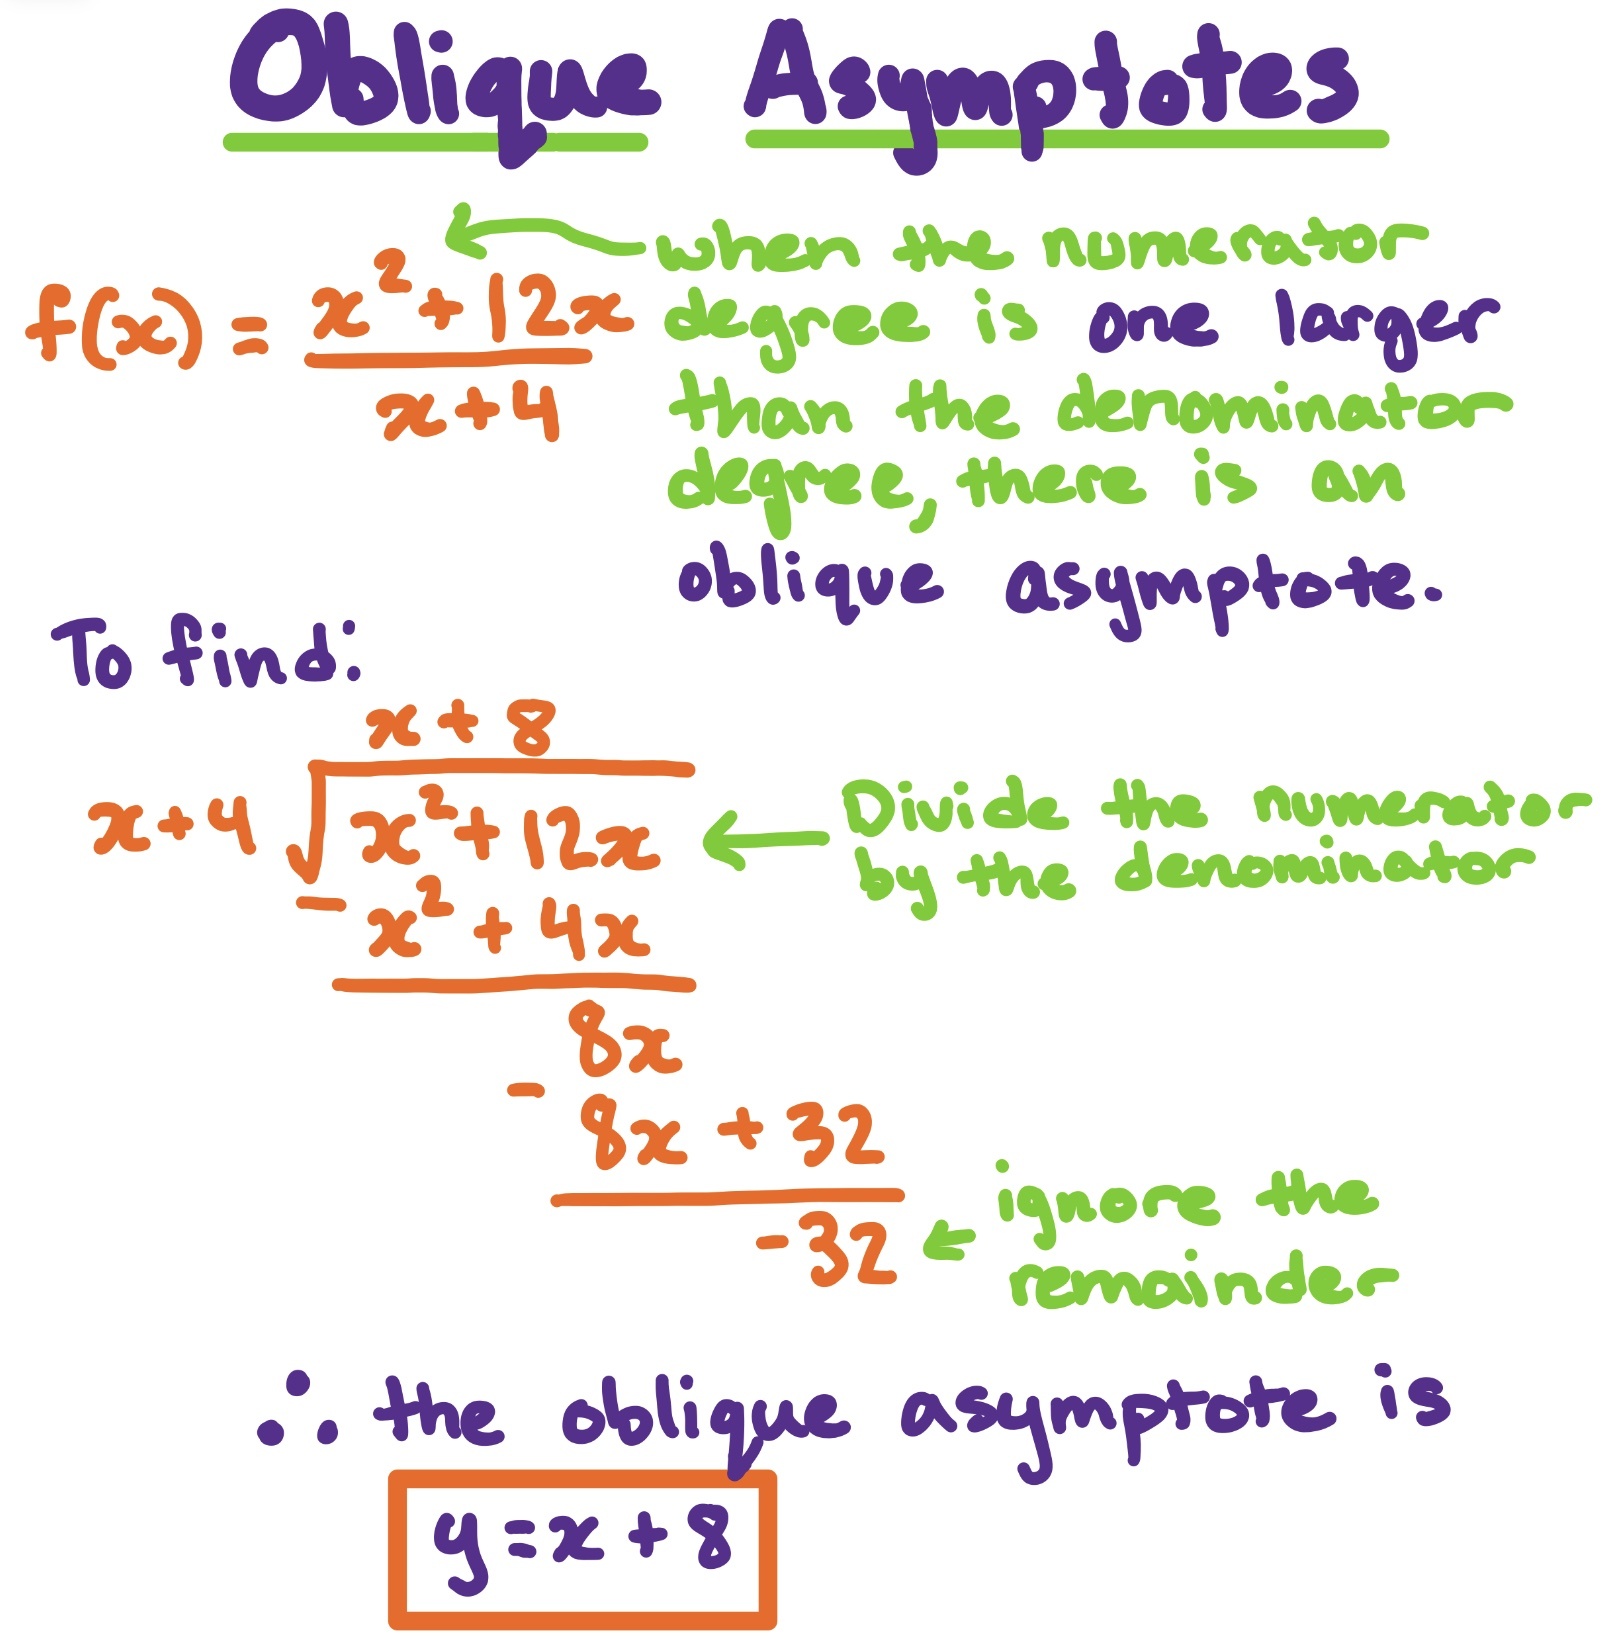 Oblique Asymptotes
f(x) = x² + 12x / x + 4
when the numerator
degree is one larger
than the denominator
degree, there is an
oblique asymptote.
To find:
x + 8
x + 4 √ x² + 12x
Divide the numerator
by the denominator
- x² + 4x
8x
- 8x + 32
-32
ignore the
remainder
∴ the oblique asymptote is
y = x + 8